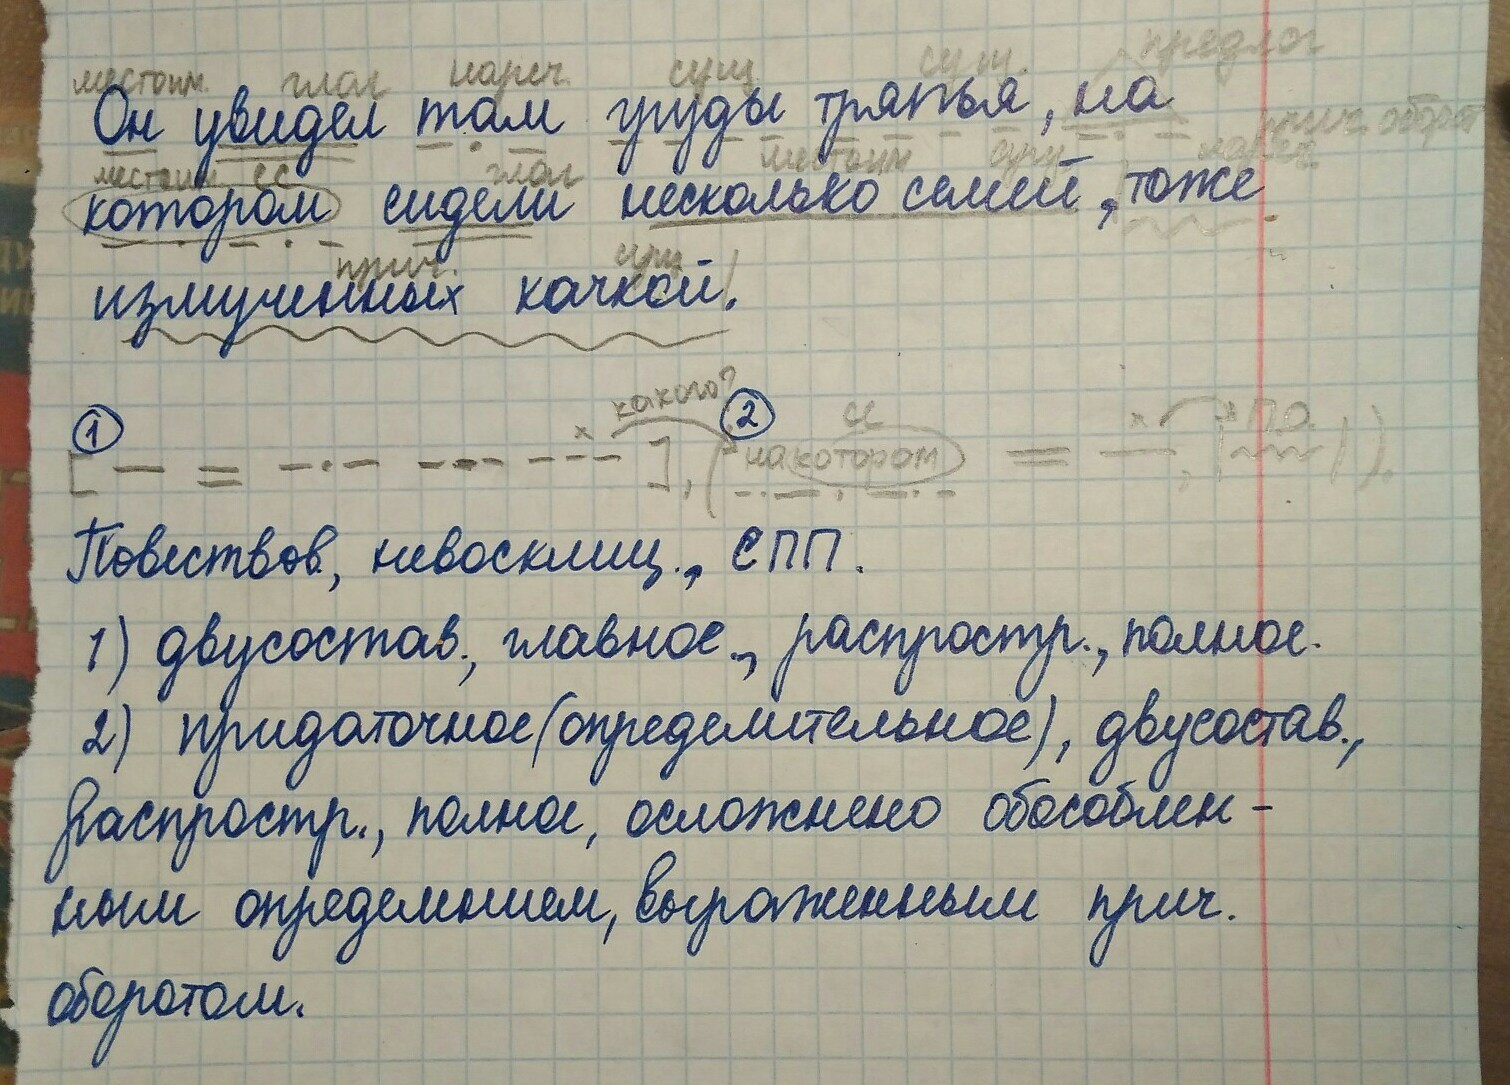 местоим. глаг нареч. сущ сущ. предлог
Он увидел там груды тряпья, на
местоим сс глаг местоим сущ нареч. прич. оборот
котором сидели несколько семей, тоже
прич. сущ
измученных качкой.
какого?
1 х 2 сс х П.О.
[ ], (на котором , | | ).
Повествов., невосклиц., СПП.
1) двусостав., главное., распростр., полное.
2) придаточное (определительное), двусостав.,
распростр., полное, осложнено обособлен-
ным определением, выраженным прич.
оборотом.